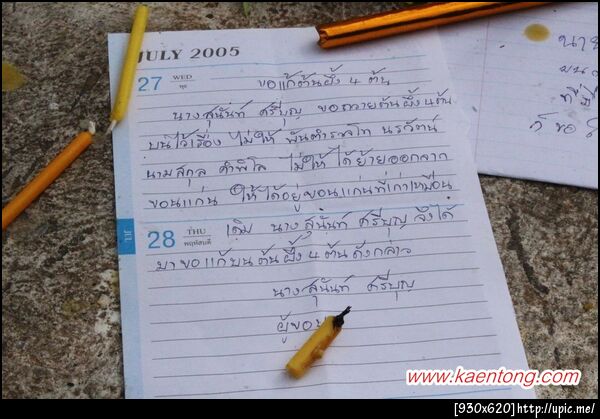 JULY 2005
27 WED
พุธ
ขอแก้ต้นผึ้ง 4 ต้น
นางสุนันท์ ศรีบุญ ขอถวายต้นผึ้ง 4 ต้น
บนไว้เรื่อง ไม่ให้ พันตำรวจโท นรวัตน์
นามสกุล คำพิโล ไม่ให้ ได้ย้ายออกจาก
ขอนแก่น ให้ได้อยู่ขอนแก่นที่เก่าเหมือน
28 THU
พฤหัสบดี
เดิม นางสุนันท์ ศรีบุญ จึงได้
มาขอแก้บนต้นผึ้ง 4 ต้นดังกล่าว
นางสุนันท์ ศรีบุญ
ผู้ขอ
นาย
www.kaentong.com
[930x620] http://upic.me/